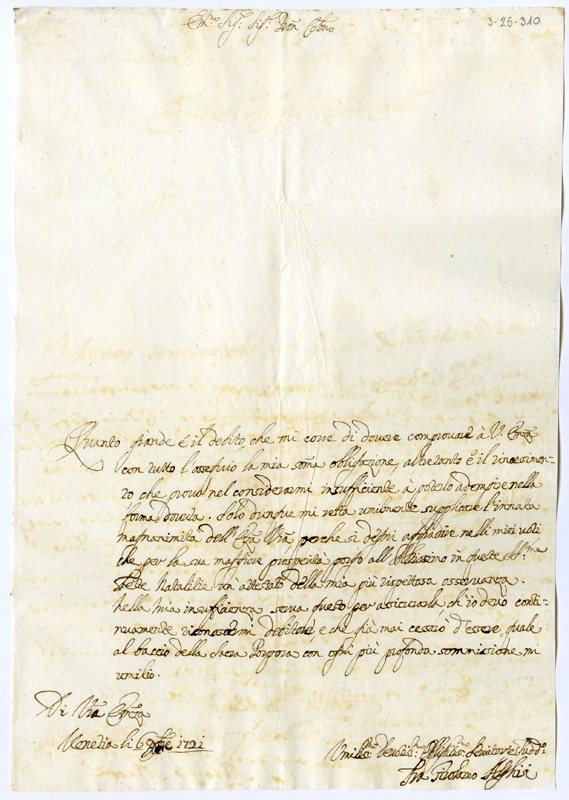 3-25-310
Em.o Sig.r Sig.r Pron Col.mo
Quanto grande è il debito, che mi corre di dovere comprovare à V. Em.za
con tutto l'ossequio la mia som̃a obligatione, altretanto è il rincrescimen-
to che provo nel considerarmi insufficiente à poterlo adempire nella
forma dovuta. Solo dunque mi resta umilmente supplicare l'innata
magnanimità dell'Em.za Vr̃a, perche si degni aggradire nelli miei voti
che per la sua maggiore prosperità porgo all'Altissimo in queste SS.me
Feste Natalitie un attestato della mia più rispettosa osservanza.
nella mia insufficienza serva questo per assicurarla ch'io devo conti-
nuamente riconoscermi debitore e che già mai cesserò d'essere, quale
al baccio della Sacra Porpora con ogni più profonda sommissione mi
umilio.
Di Vr̃a Em.za
Venetia li 6 Xbre 1721
Umiliss.o Devotis.o Obligatis.o Servitore e Sudd.o
Fra Girolamo